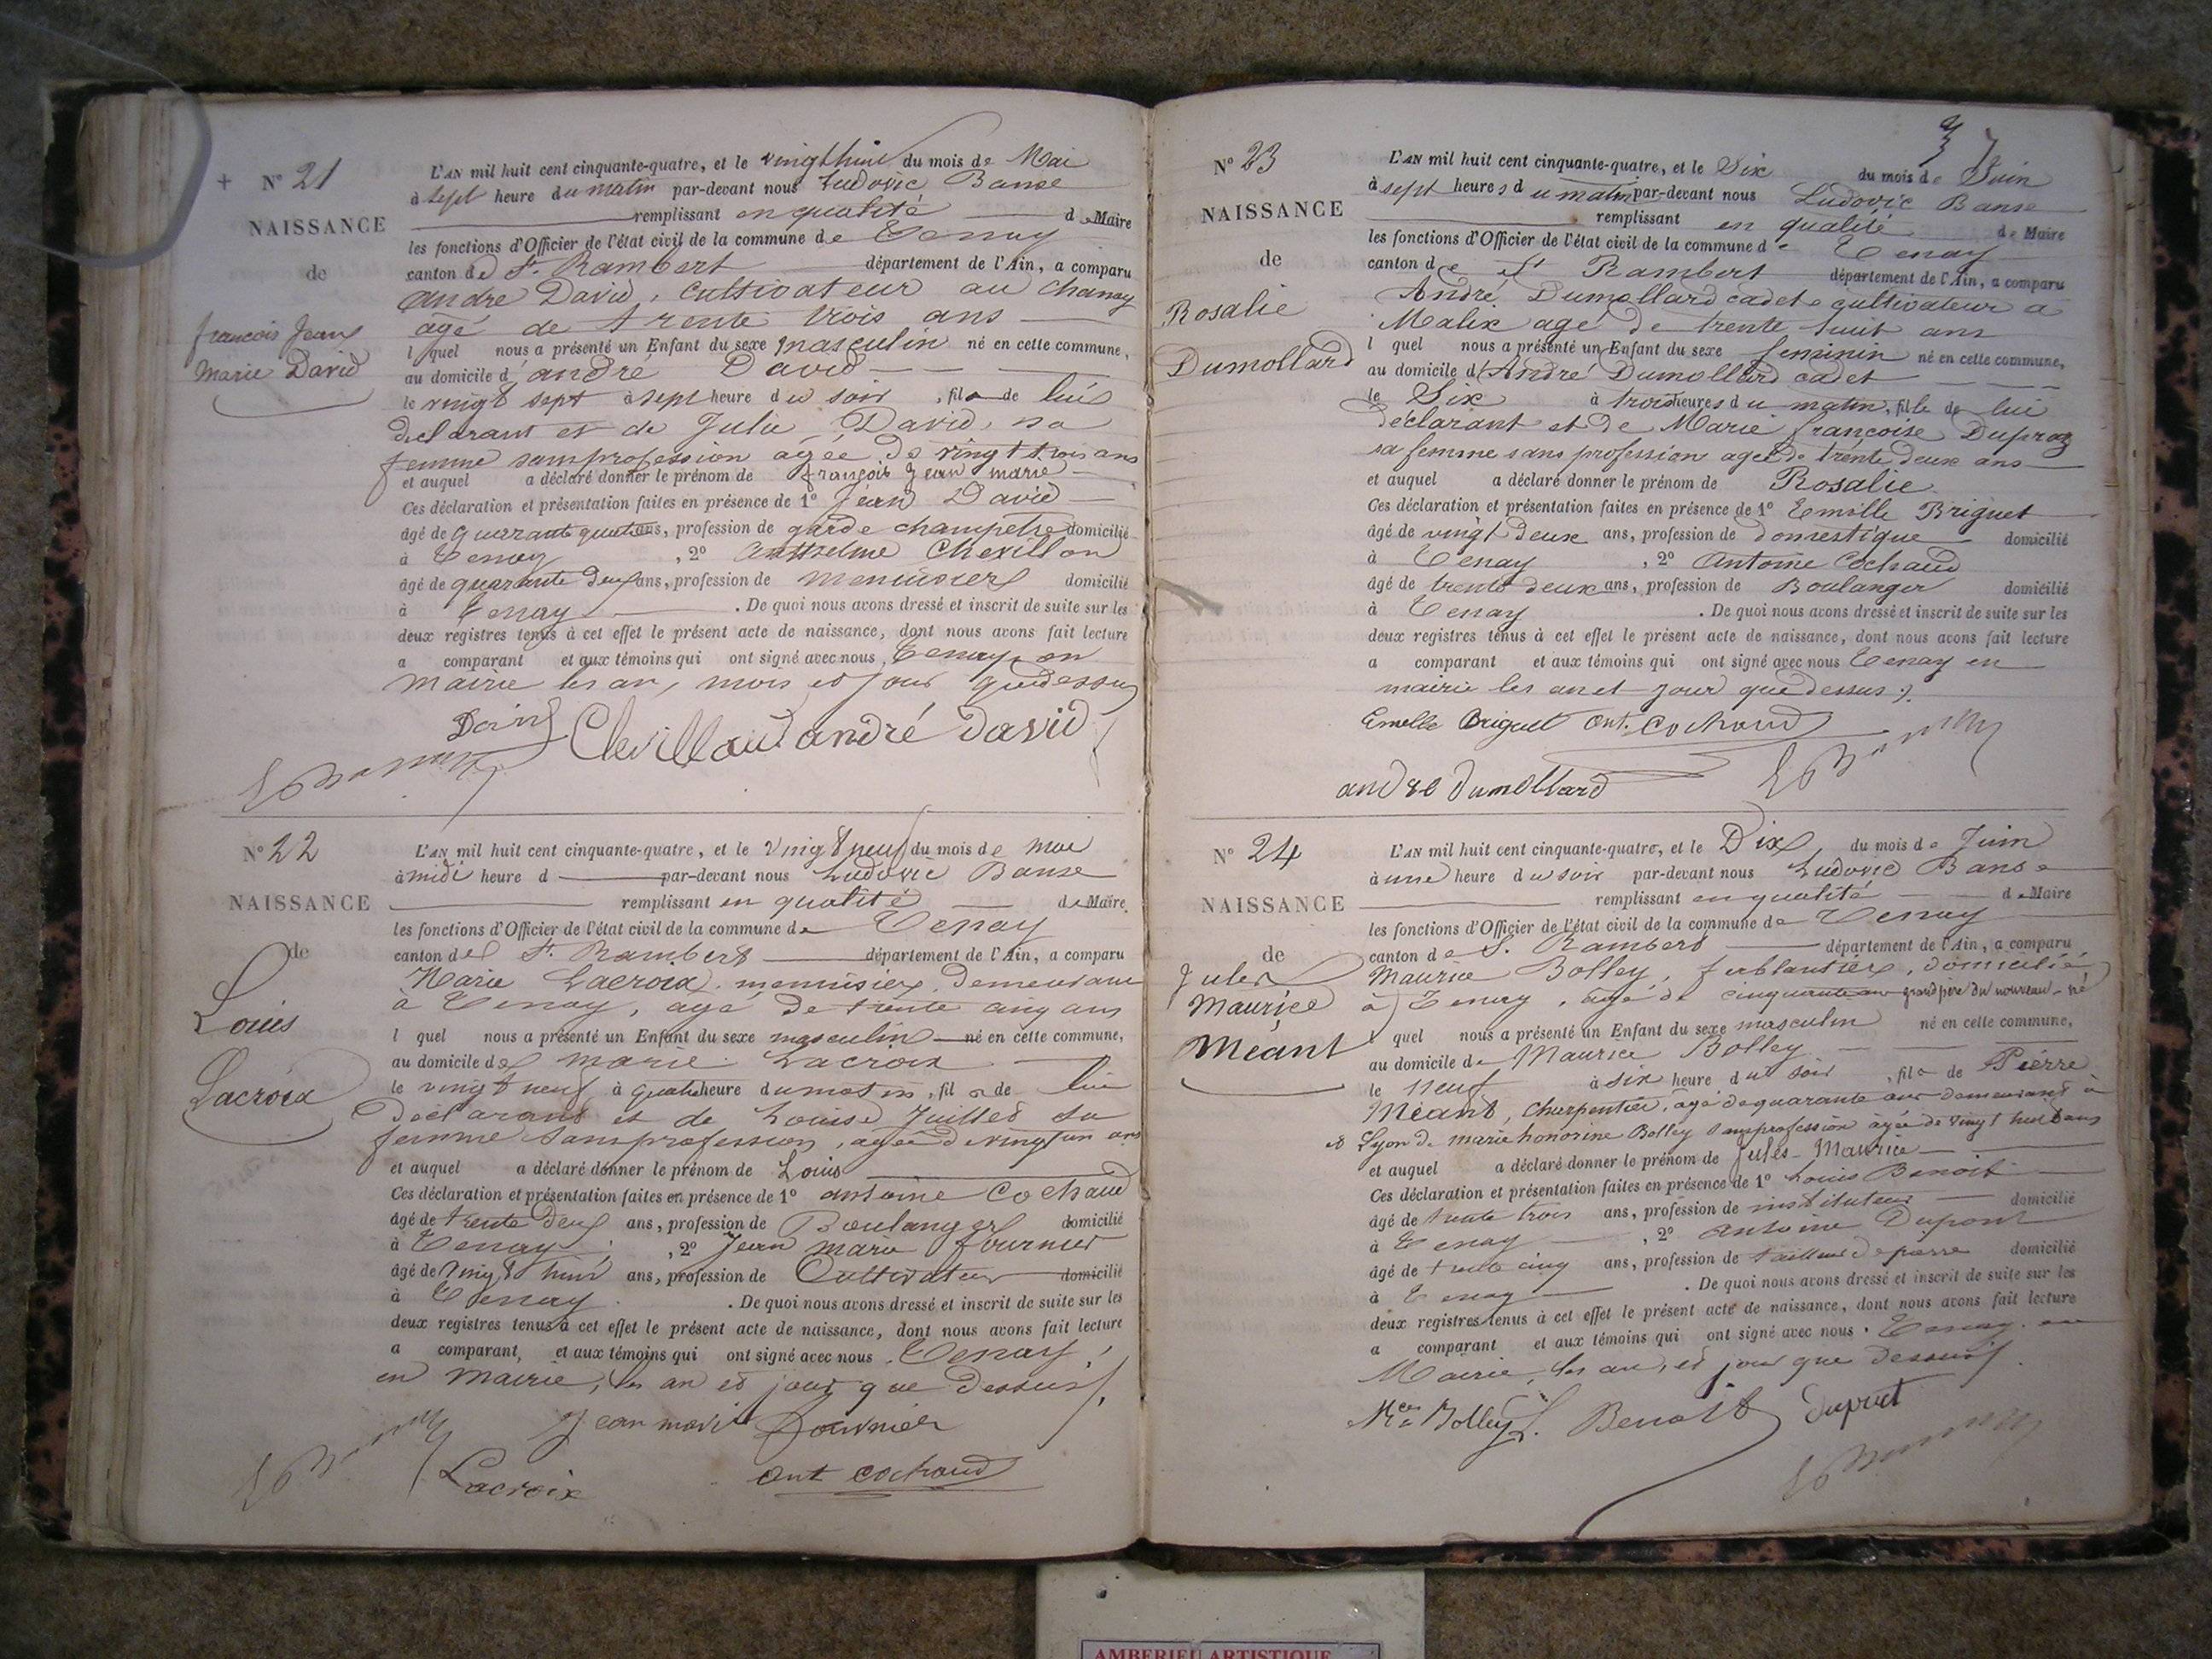 + N° 21
NAISSANCE
de
françois Jean
Marie David
L'AN mil huit cent cinquante-quatre, et le vingt huit du mois de Mai
à sept heure du matin par-devant nous Ludovic Banse
remplissant en qualité de Maire
les fonctions d'Officier de l'état civil de la commune de Tenay
canton de St. Rambert département de l'Ain, a comparu
andre David, cultivateur au chanay
agé de trente trois ans
l quel nous a présenté un Enfant du sexe masculin né en cette commune,
au domicile d'andré David
le vingt sept à sept heure du soir, fils de lui
declarant et de Julie David, sa
femme sans profession agée de vingt trois ans
et auquel a déclaré donner le prénom de françois Jean marie
Ces déclaration et présentation faites en présence de 1° Jean David
âgé de quarante quatre ans, profession de garde champetre domicilié
à Tenay, 2° Anthelme Chevillon
âgé de quarante deux ans, profession de menuisier domicilié
à Tenay. De quoi nous avons dressé et inscrit de suite sur les
deux registres tenus à cet effet le présent acte de naissance, dont nous avons fait lecture
a comparant et aux témoins qui ont signé avec nous Tenay, en
mairie les an, mois et jour que dessus
David Chevillon andré david
N° 22
NAISSANCE
de
Louis
Lacroix
L'AN mil huit cent cinquante-quatre, et le vingt neuf du mois de mai
à midi heure d par-devant nous Ludovic Banse
remplissant en qualité de Maire
les fonctions d'Officier de l'état civil de la commune de Tenay
canton de St. Rambert département de l'Ain, a comparu
Marie Lacroix, menuisier, demeurant
à Tenay, agé de trente cinq ans
l quel nous a présenté un Enfant du sexe masculin né en cette commune,
au domicile de marie Lacroix
le vingt neuf à quatre heure du matin, fils de lui
déclarant et de Louise Juillet sa
femme sans profession, agée de vingt un ans
et auquel a déclaré donner le prénom de Louis
Ces déclaration et présentation faites en présence de 1° antoine Cochaud
âgé de trente deux ans, profession de Boulanger domicilié
à Tenay, 2° Jean marie fournier
âgé de vingt huit ans, profession de Cultivateur domicilié
à Tenay. De quoi nous avons dressé et inscrit de suite sur les
deux registres tenus à cet effet le présent acte de naissance, dont nous avons fait lecture
a comparant, et aux témoins qui ont signé avec nous, Tenay,
en mairie, les an et jour que dessus.
Jean marie fournier
Lacroix ant cochaud
37
N° 23
NAISSANCE
de
Rosalie
Dumollard
L'AN mil huit cent cinquante-quatre, et le Six du mois de Juin
à sept heures du matin par-devant nous Ludovic Banse
remplissant en qualité de Maire
les fonctions d'Officier de l'état civil de la commune de Tenay
canton de St Rambert département de l'Ain, a comparu
André Dumollard cadet cultivateur à
Malix agé de trente huit ans
l quel nous a présenté un Enfant du sexe feminin né en cette commune,
au domicile d'André Dumollard cadet
le Six à trois heures du matin, fille de lui
déclarant et de Marie françoise Dupraz
sa femme sans profession agée de trente deux ans
et auquel a déclaré donner le prénom de Rosalie
Ces déclaration et présentation faites en présence de 1° Emille Briguet
âgé de vingt deux ans, profession de domestique domicilié
à Tenay, 2° Antoine Cochaud
âgé de trente deux ans, profession de Boulanger domicilié
à Tenay. De quoi nous avons dressé et inscrit de suite sur les
deux registres tenus à cet effet le présent acte de naissance, dont nous avons fait lecture
a comparant et aux témoins qui ont signé avec nous Tenay en
mairie les an et jour que dessus.
Emille Briguet Ant. Cochaud
andre dumollard
N° 24
NAISSANCE
de
Jules
Maurice
Méant
L'AN mil huit cent cinquante-quatre, et le Dix du mois de Juin
à une heure du soir par-devant nous Ludovic Banse
remplissant en qualité de Maire
les fonctions d'Officier de l'état civil de la commune de Tenay
canton de S. Rambert département de l'Ain, a comparu
Maurice Bolley, ferblantier, domicilié
à Tenay, agé de cinquante ans grand père du nouveau-né
l quel nous a présenté un Enfant du sexe masculin né en cette commune,
au domicile de Maurice Bolley
le neuf à six heure du soir, fils de Pierre
Méant, charpentier, agé de quarante ans demeurant à
Lyon et de marie honorine Bolley sans profession agée de vingt huit ans
et auquel a déclaré donner le prénom de Jules-Maurice
Ces déclaration et présentation faites en présence de 1° Louis Benoit
âgé de trente trois ans, profession de instituteur domicilié
à Tenay, 2° antoine Dupont
âgé de trente cinq ans, profession de tailleur de pierre domicilié
à Tenay. De quoi nous avons dressé et inscrit de suite sur les
deux registres tenus à cet effet le présent acte de naissance, dont nous avons fait lecture
a comparant et aux témoins qui ont signé avec nous. Tenay en
Mairie, les an et jour que dessus.
Mce Bolley L. Benoit
AMBERIEU ARTISTIQUE